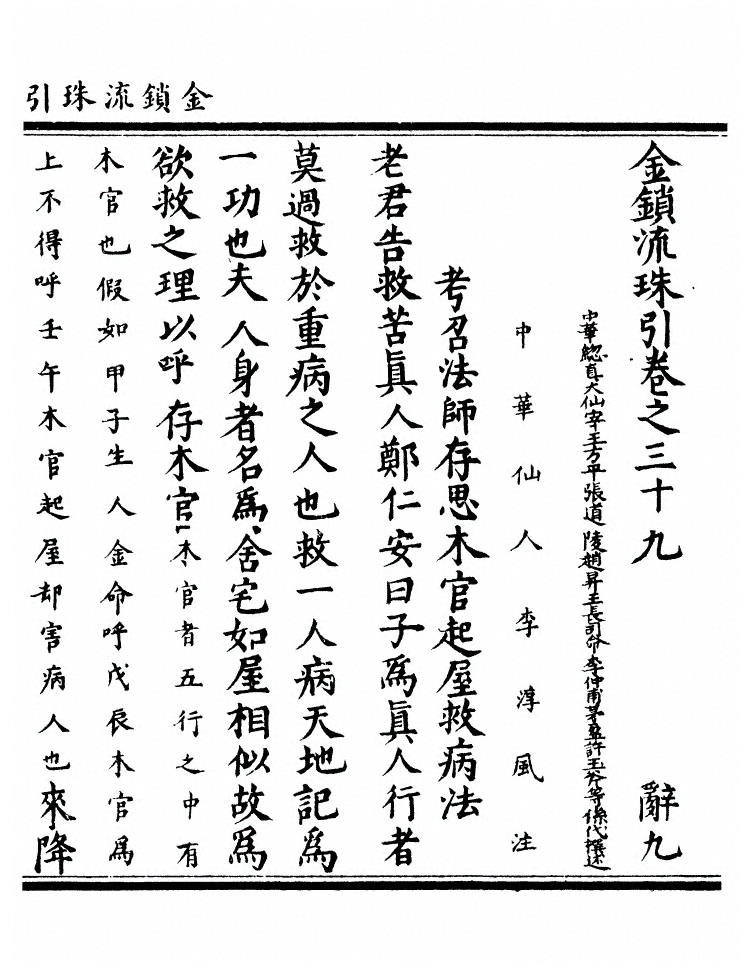 金鎖流珠引
金鎖流珠引卷之三十九 辭九
中華緫眞大仙宰王方平張道陵趙昇王長司命李仲甫茅盈許玉斧等係代撰述
中華仙人李淳風注
考召法師存思木官起屋救病法
老君告救苦眞人鄭仁安曰子爲眞人行者
莫過救於重病之人也救一人病天地記爲
一功也夫人身者名爲舍宅如屋相似故爲
欲救之理以呼存木官木官者五行之中有
木官也假如甲子生人金命呼戊辰木官爲
上不得呼壬午木官起屋却害病人也來降